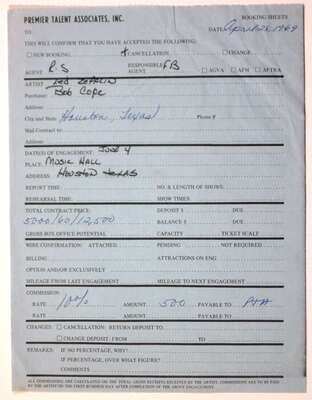 PREMIER TALENT ASSOCIATES, INC. BOOKING SHEETS
TO DATE April 28, 1969
THIS WILL CONFIRM THAT YOU HAVE ACCEPTED THE FOLLOWING:
NEW BOOKING CANCELLATION CHANGE
AGENT R.S RESPONSIBLE AGENT FB AGVA AFM AFTRA
ARTIST LED ZEPPELIN
Purchaser Bob Cope
Address
City and State Houston, Texas Phone #
Mail Contract to
Address
DATE(S) OF ENGAGEMENT: JUNE 4
PLACE: MUSIC HALL
ADDRESS: HOUSTON TEXAS
REPORT TIME: NO. & LENGTH OF SHOWS:
REHEARSAL TIME: SHOW TIMES:
TOTAL CONTRACT PRICE: DEPOSIT $ DUE
5000/60/12,500 BALANCE $ DUE
GROSS BOX OFFICE POTENTIAL CAPACITY TICKET SCALE
WIRE CONFIRMATION: ATTACHED PENDING NOT REQUIRED
BILLING ATTRACTIONS ON ENG
OPTION AND/OR EXCLUSIVELY
MILEAGE FROM LAST ENGAGEMENT MILEAGE TO NEXT ENGAGEMENT
COMMISSION:
RATE 10% AMOUNT 500 PAYABLE TO PTA
RATE AMOUNT PAYABLE TO
CHANGES: CANCELLATION: RETURN DEPOSIT TO:
CHANGE DEPOSIT: FROM TO
REMARKS: IF NO PERCENTAGE, WHY?
IF PERCENTAGE, OVER WHAT FIGURE?
COMMENTS
ALL COMMISSIONS ARE CALCULATED ON THE TOTAL GROSS RECEIPTS RECEIVED BY THE ARTIST. COMMISSIONS ARE TO BE PAID
BY THE ARTIST ON THE FIRST BUSINESS DAY AFTER COMPLETION OF THIS ENGAGEMENT.